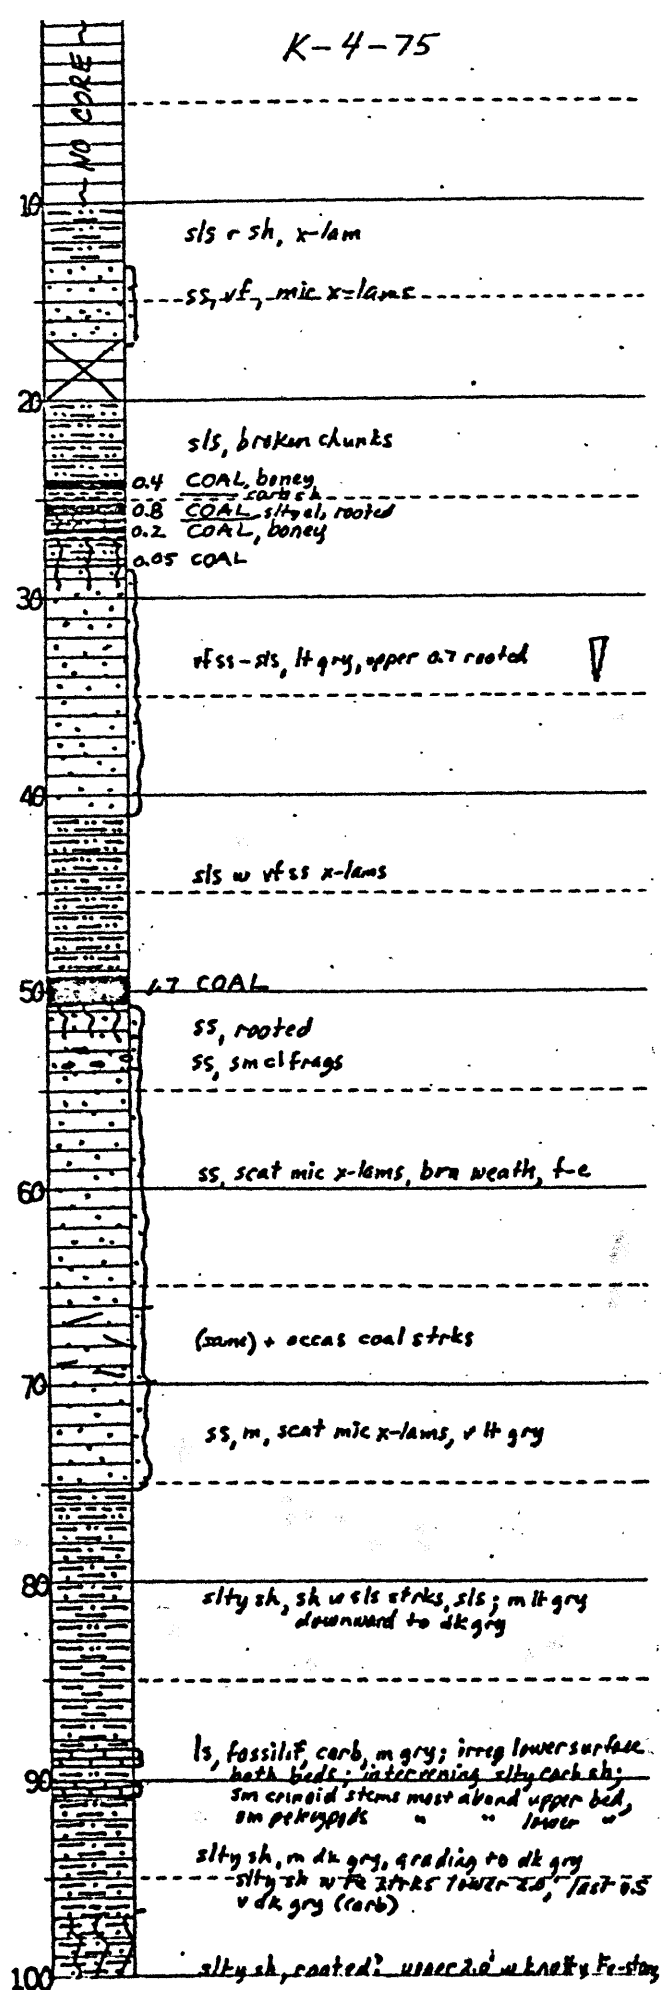 K-4-75
~ NO CORE ~
10
sls r sh, x-lam
ss, vf, mic x-lams
20
sls, broken chunks
0.4 COAL, boney
carb sh
0.8 COAL slty cl, rooted
0.2 COAL, boney
0.05 COAL
30
vf ss-sls, lt gry, upper 0.7 rooted
40
sls w vf ss x-lams
50
1.7 COAL
ss, rooted
ss, sm cl frags
ss, scat mic x-lams, brn weath, f-c
60
(same) + occas coal strks
70
ss, m, scat mic x-lams, v lt gry
80
slty sh, sh w sls strks, sls; m lt gry
downward to dk gry
ls, fossilif, carb, m gry; irreg lower surface
both beds; intervening slty carb sh;
90
sm crinoid stems most abund upper bed,
sm pelcypods " " lower "
slty sh, m dk gry, grading to dk gry
slty sh w Fe strks lower 2.0', last 0.5
v dk gry (carb)
100
slty sh, rooted? upper 2.0' w knotty Fe-stong